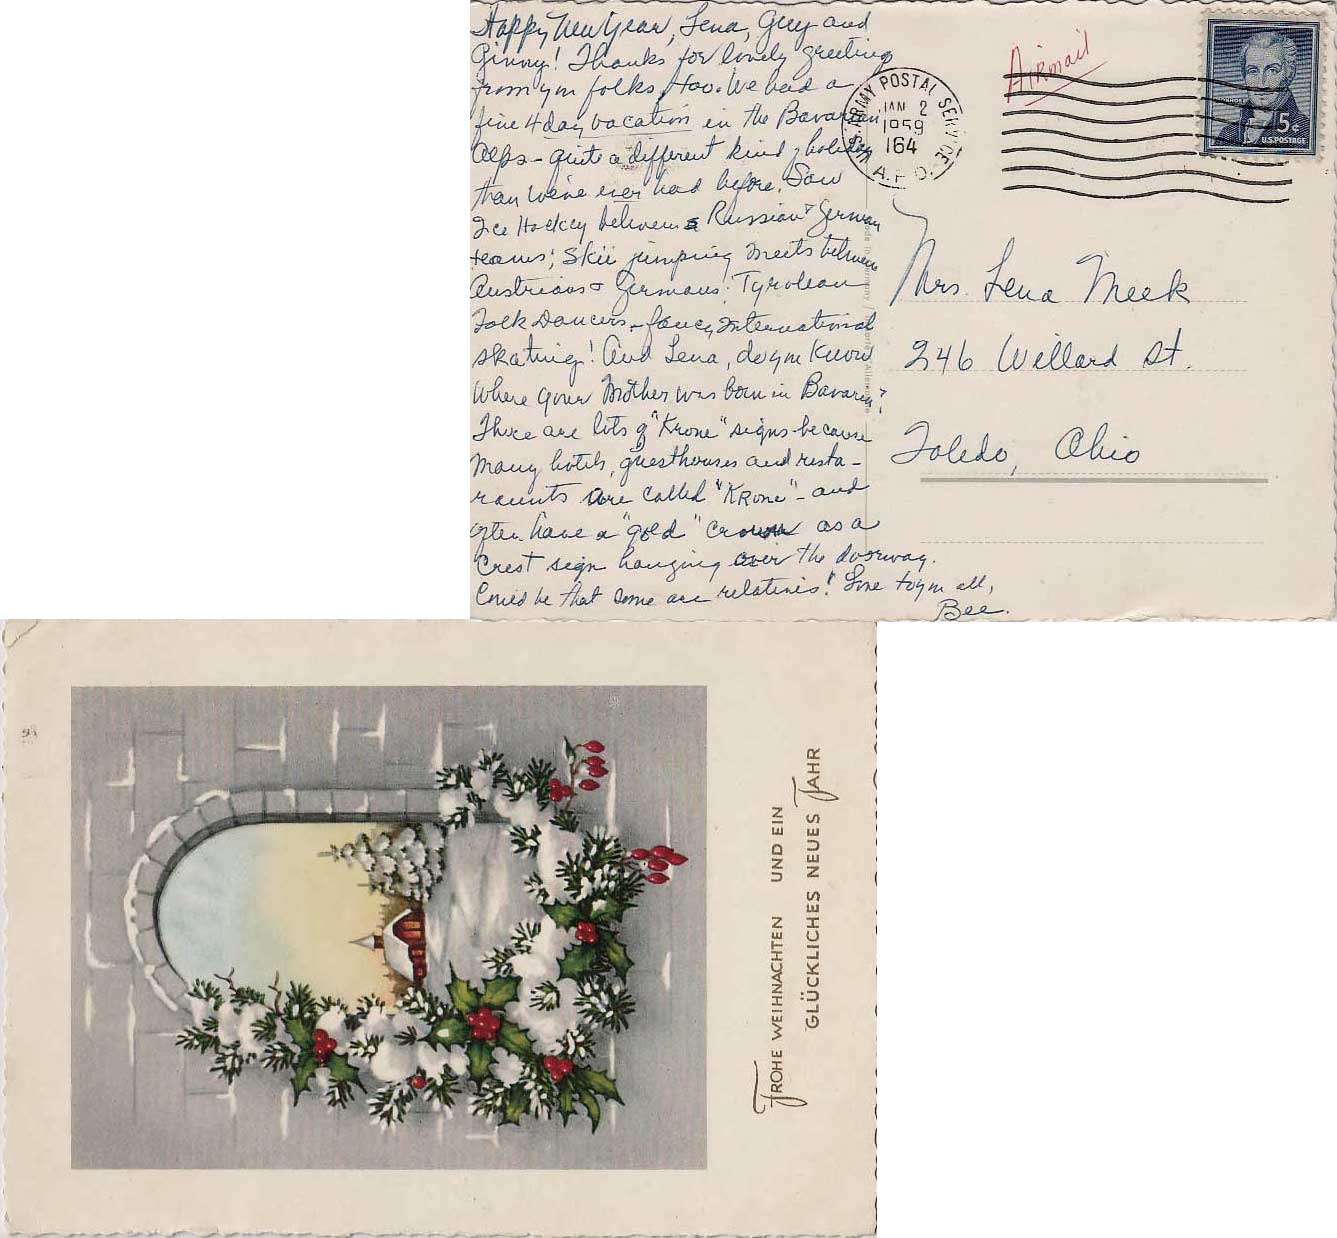 Happy New Year, Lena, Guy and
Ginny! Thanks for lovely greeting
from you folks, too. We had a
fine 4 day vacation in the Bavarian
Alps - quite a different kind of holiday
than we've ever had before. Saw
Ice Hockey between Russian & German
teams; Skii jumping meets between
Austrians & Germans; Tyrolean
Folk Dancers, fancy international
skating! And Lena, do you know
where your Mother was born in Bavaria?
There are lots of "Krone" signs because
many hotels, guesthouses and resta-
raunts are called "KRone" - and
often have a "gold" crown as a
crest sign hanging over the doorway.
Could be that some are relatives! Love to you all,
Bee.
Airmail
U.S. ARMY POSTAL SERVICE
JAN 2
1959
164
A.P.O.
5¢
U.S. POSTAGE
Made in Germany
Mrs. Lena Meek
246 Willard St.
Toledo, Ohio
FROHE WEIHNACHTEN UND EIN
GLÜCKLICHES NEUES JAHR